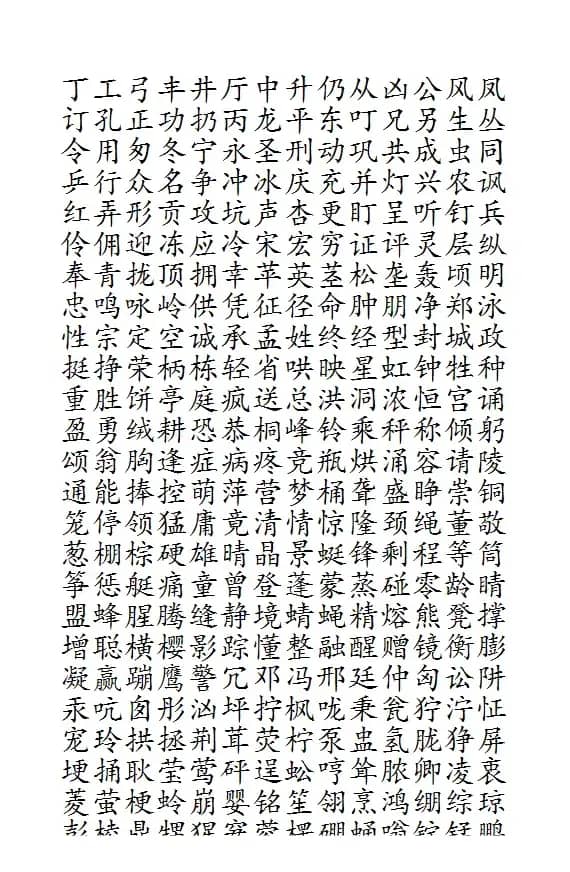 丁工弓丰井厅中升仍从凶公风凤
订孔正功扔丙龙平东叮兄另生丛
令用匆冬宁永圣刑动巩共成虫同
乒行众名争冲冰庆充并灯兴农讽
红弄形贡攻坑声杏更盯呈听钉兵
伶佣迎冻应冷宋宏穷证评灵层纵
奉青拢顶拥幸苹英茎松垄轰顷明
忠鸣咏岭供凭征径命肿朋净郑泳
性宗定空诚承孟姓终经型封城政
挺挣荣柄栋轻省哄映星虹钟牲种
重胜饼亭庭疯送总洪洞浓恒宫诵
盈勇绒耕恐恭桐峰铃乘秤称倾躬
颂翁胸逢症病疼竞瓶烘涌容请陵
通能捧控萌萍营梦桶聋盛睁崇铜
笼停领猛庸竟清情惊隆颈绳董敬
葱棚棕硬雄晴晶景蜓锋剩程等筒
筝惩艇痛童曾登蓬蒙蒸碰零龄睛
盟蜂腥腾缝静境蜻蝇精熔熊凳撑
增聪横樱影踪懂整融醒赠镜衡膨
凝赢蹦鹰警冗邓冯邢廷仲匈讼阱
汞吭囱彤汹坪拧枫咙秉瓮狞泞怔
宠玲拱拯荆茸荧柠泵盅氢胧狰屏
埂捅耿莹莺砰逞蚣哼耸脓卿凌衷
菱萤梗蛉崩婴铭笙翎烹鸿绷综琼
彭棱鼎甥猩寓蓉楞硼蛹嗡锭锰鹏